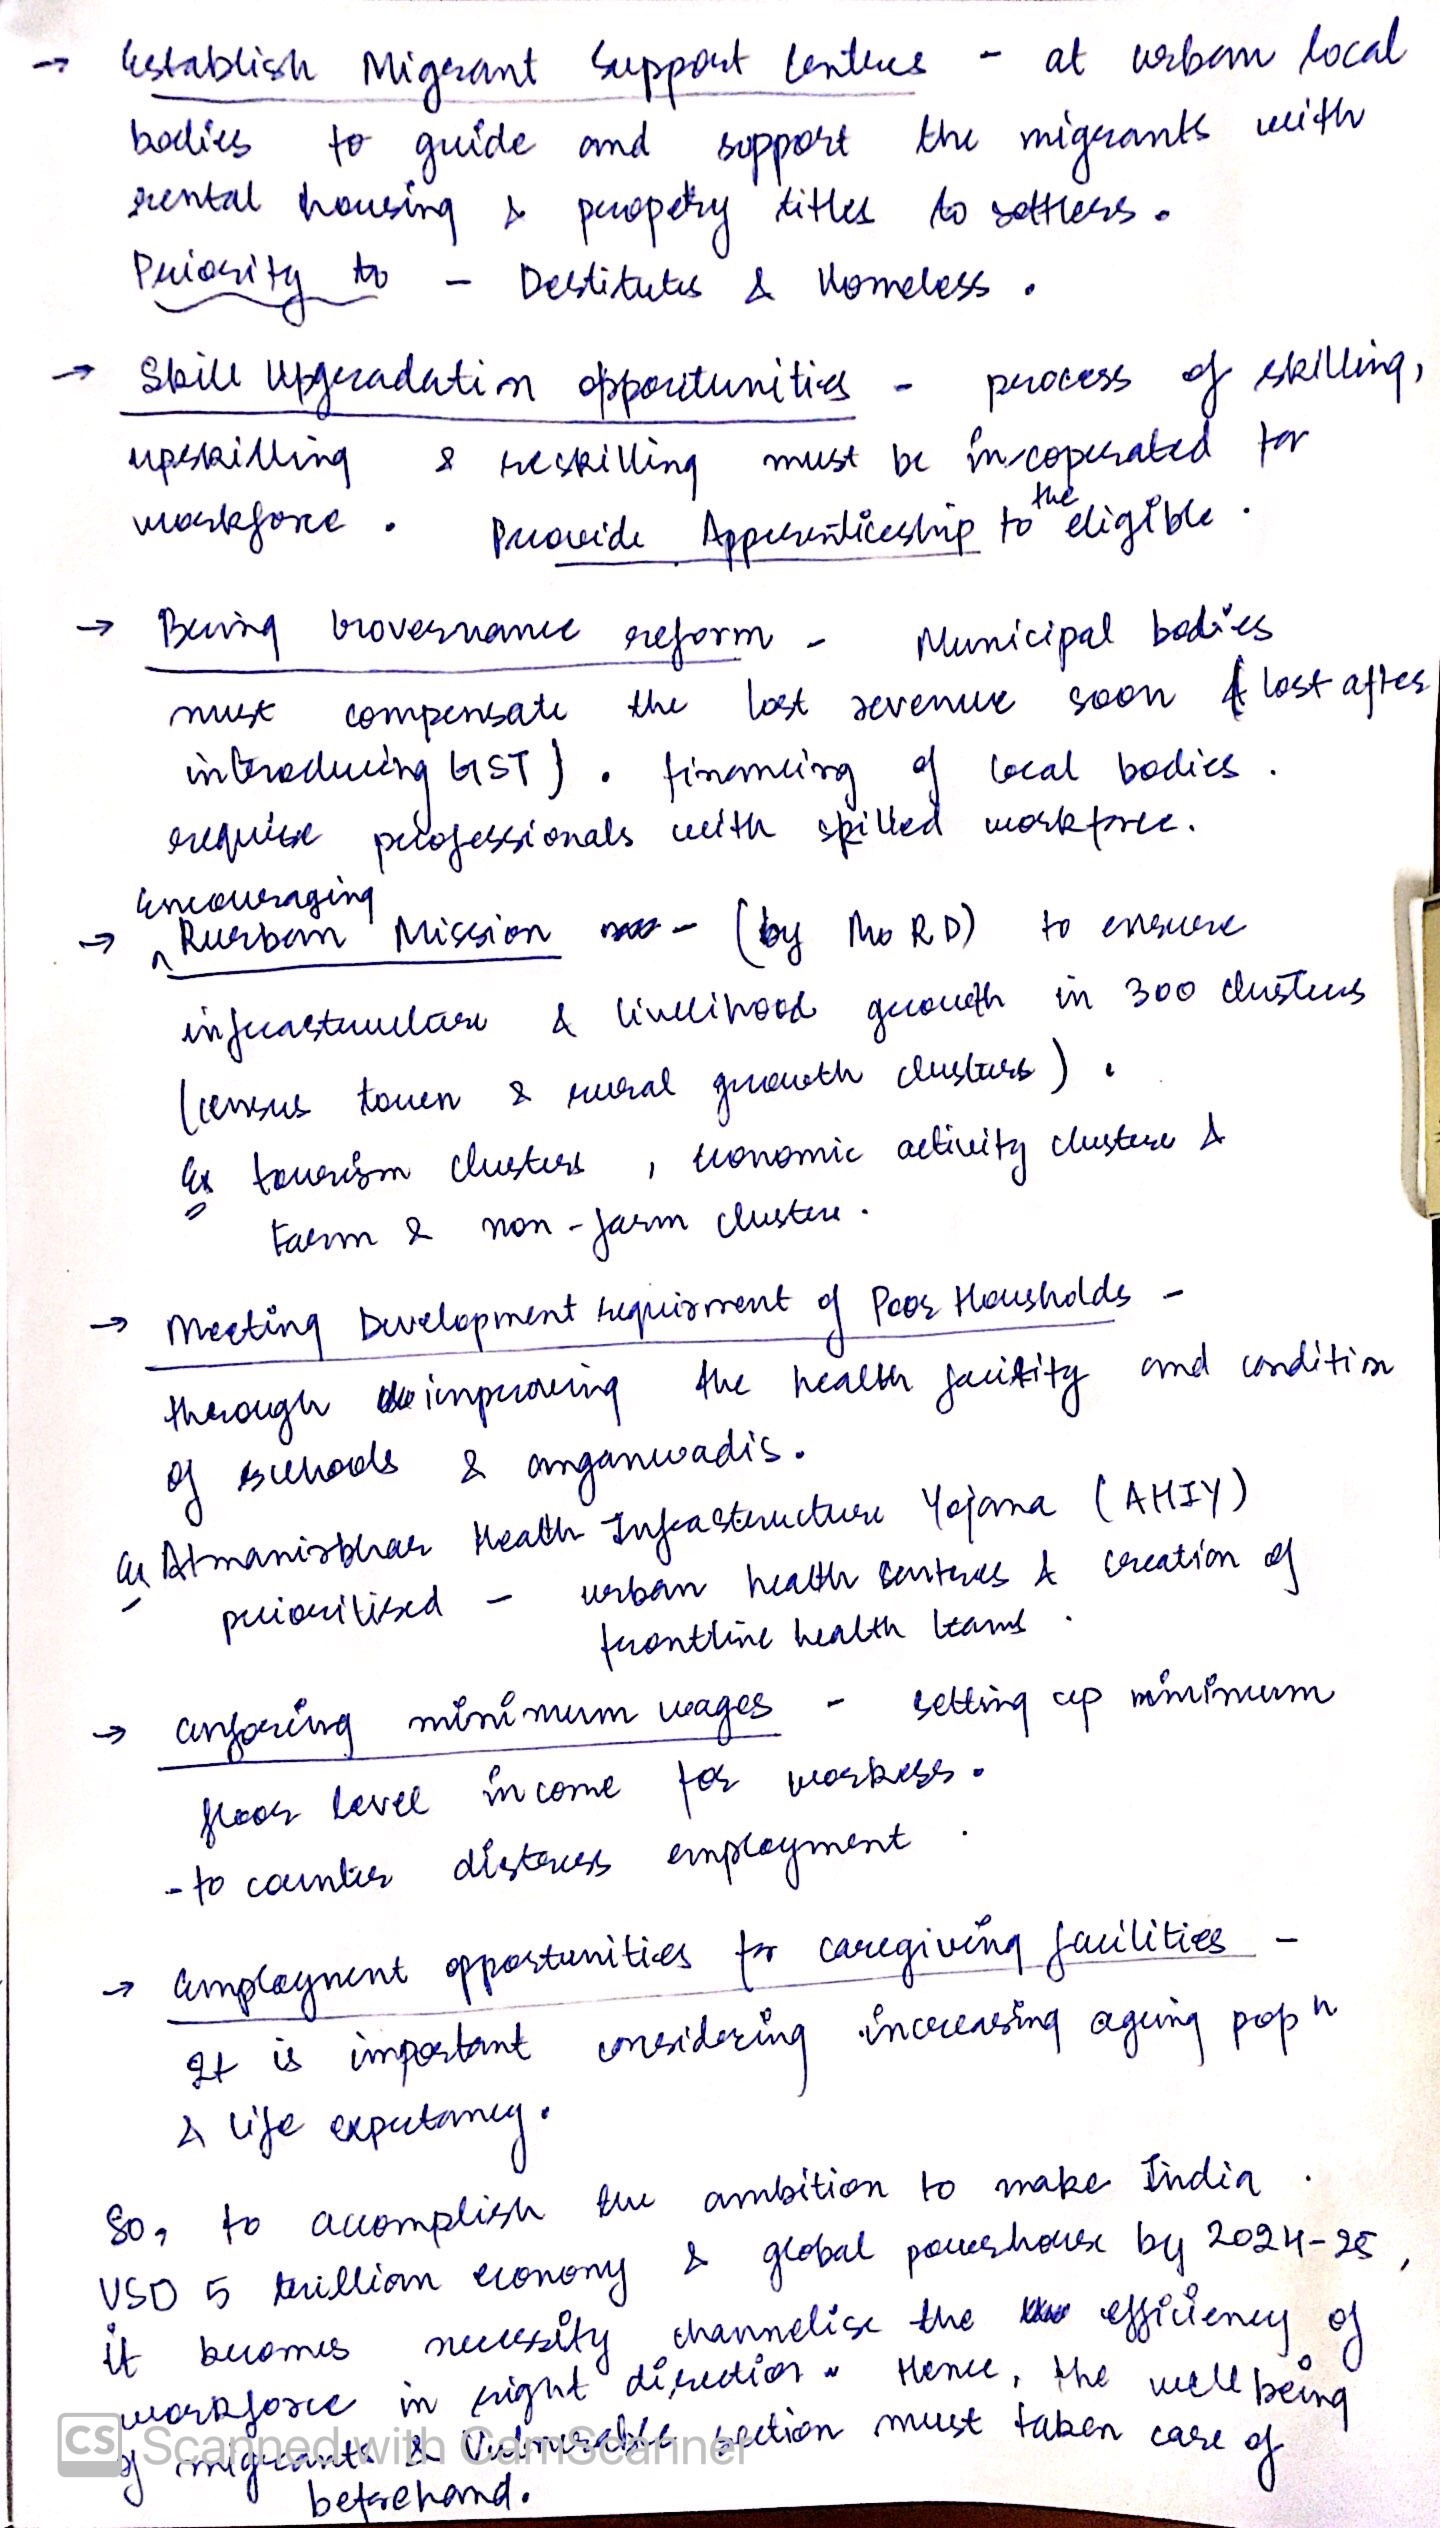 → Establish Migrant Support Centers - at urban local
bodies to guide and support the migrants with
rental housing & propetry titles to settlers.
Priority to - Destitutes & Homeless.
→ Skill Upgradation opportunities - process of skilling,
upskilling & reskilling must be incoperated for
workforce. Provide Apprenticeship to the eligible.
→ Bring Governance reform - Municipal bodies
must compensate the lost revenue soon { lost after
introducing GST }. financing of local bodies.
require professionals with skilled workforce.
Encouraging
→ Rurban Mission - (by MoRD) to ensure
infrastructure & livelihood growth in 300 clusters
(census town & rural growth clusters).
Ex tourism clusters, economic activity cluster &
Farm & non-farm cluster.
→ Meeting Development requirment of Poor Housholds -
through improving the health facility and condition
of schools & anganwadis.
Ex Atmanirbhar Health Infrastructure Yojana (AHIY)
prioritised - urban health centres & creation of
frontline health teams.
→ enforcing minimum wages - setting up minimum
floor level income for workers.
- to counter distress employment.
→ Employment opportunities for caregiving facilities -
It is important considering increasing ageing popn
& life expectancy.
So, to accomplish the ambition to make India
USD 5 trillion economy & global powerhouse by 2024-25,
it becomes necessity channelise the efficiency of
workforce in right direction. Hence, the well being
of migrants & Vulnerable section must taken care of
beforehand.
CS Scanned with CamScanner